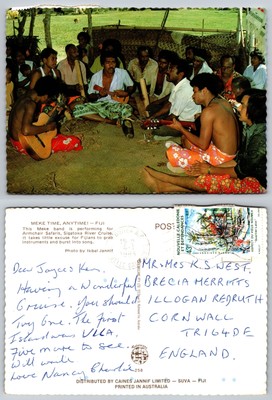 MEKE TIME, ANYTIME! - FIJI
This Meke band is performing for
Armchair Safaris, Sigatoka River Cruise.
It takes little excuse for Fijians to grab
instruments and burst into song.
Photo by: Iqbal Jannif
POST
NOUVELLE CALEDONIE
ET DEPENDANCES
Dear Joyce & Ken,
Having a Wonderful
Cruise. You should
try one. The first
Island was VILA.
Five more to see.
Will write
Love Nancy Charlie
MR & MRS K.S. WEST,
BRECIA MERRITTS
ILLOGAN REDRUTH
CORNWALL
TR16 4DE
ENGLAND.
DISTRIBUTED BY CAINES JANNIF LIMITED - SUVA - FIJI
PRINTED IN AUSTRALIA